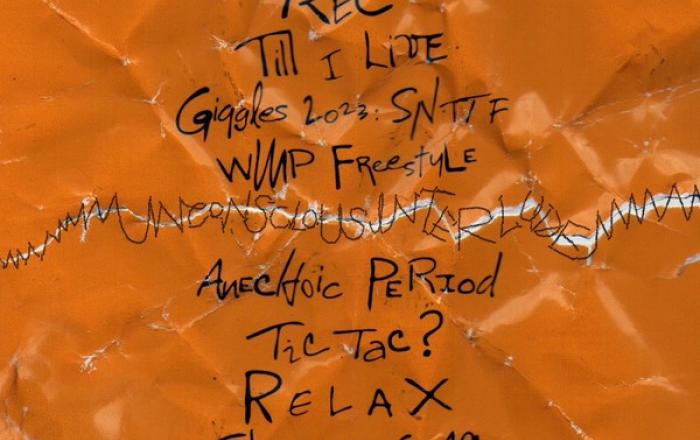 REC
Till I LiVE
Giggles 2023: SNTTF
WMP FreestyLE
UNCONSCIOUS INTERLUDE
AnecHoic PERiod
Tic Tac?
RELAX